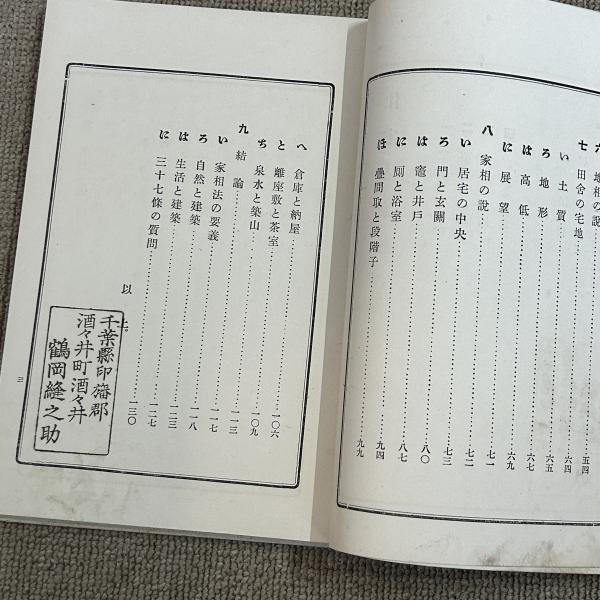 六 地相の説
七 田舍の宅地……五四
い 土質……六四
ろ 地形……六五
は 高低……六七
に 展望……六九
八 家相の說……七一
い 居宅の中央……七二
ろ 門と玄關……七三
は 竈と井戶……八〇
に 厠と浴室……八七
ほ 疊間取と段階子……九四
……九九
へ 倉庫と納屋……一〇六
と 離座敷と茶室……一〇九
ち 泉水と築山……一一三
九 結論……一一七
い 家相法の要義……一一八
ろ 自然と建築……一二三
は 生活と建築……一二七
に 三十七條の質問……一三〇
以上。
千葉縣印旛郡
酒々井町酒々井
鶴岡縫之助
三